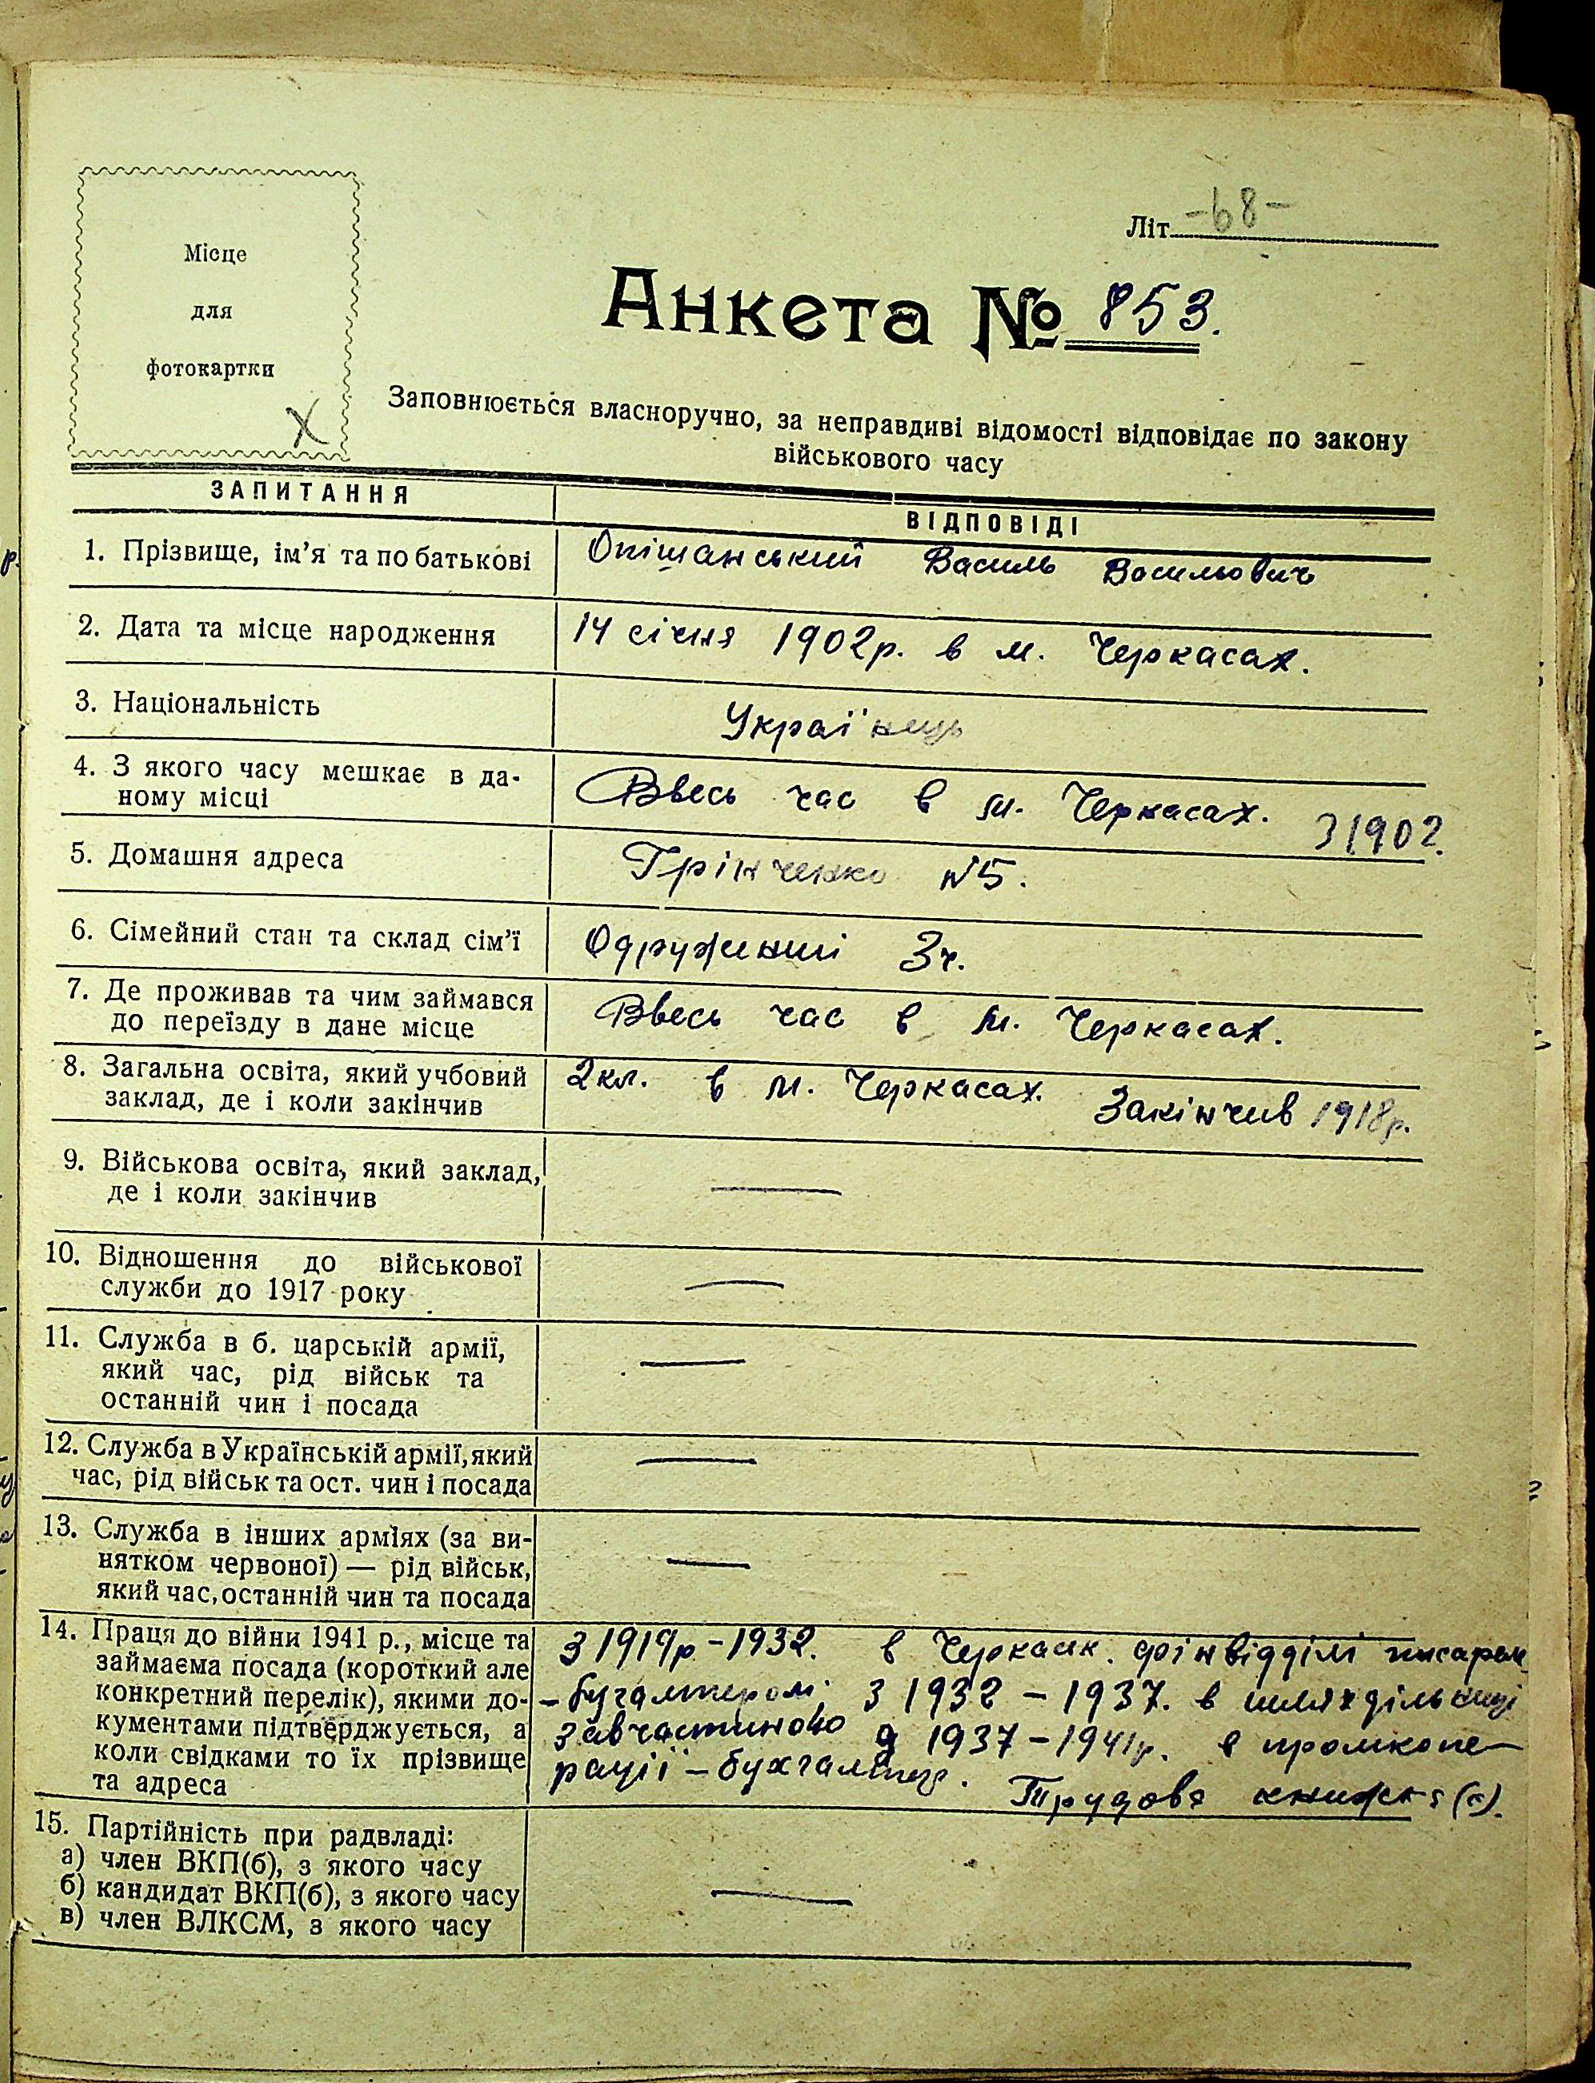 Літ. -68-
Місце
для
фотокартки
Анкета № 853.
Заповнюється власноручно, за неправдиві відомості відповідає по закону
військового часу
ЗАПИТАННЯ
ВІДПОВІДІ
1. Прізвище, ім'я та по батькові
Опішанський Василь Васильович
2. Дата та місце народження
14 січня 1902р. в м. Черкасах.
3. Національність
Украі'нець
4. З якого часу мешкає в да-
ному місці
Ввесь час в м. Черкасах. З 1902.
5. Домашня адреса
Грінченко №5.
6. Сімейний стан та склад сім'ї
Одружений 3ч.
7. Де проживав та чим займався
до переїзду в дане місце
Ввесь час в м. Черкасах.
8. Загальна освіта, який учбовий
заклад, де і коли закінчив
2кл. в м. Черкасах. Закінчив 1918р.
9. Військова освіта, який заклад,
де і коли закінчив
—
10. Відношення до військової
служби до 1917 року
—
11. Служба в б. царській армії,
який час, рід військ та
останній чин і посада
—
12. Служба в Українській армії, який
час, рід військ та ост. чин і посада
—
13. Служба в інших арміях (за ви-
нятком червоної) — рід військ,
який час, останній чин та посада
—
14. Праця до війни 1941 р., місце та
займаєма посада (короткий але
конкретний перелік), якими до-
кументами підтверджується, а
коли свідками то їх прізвище
та адреса
З 1919р – 1932. в Черкаск. фінвідділі писарем
– бугалтером; З 1932 – 1937. в шляхдільниці
завчастиною 1937 – 1941р. в промкопе-
рації – бухгалтер. Трудова книжка (с).
15. Партійність при радвладі:
а) член ВКП(б), з якого часу
б) кандидат ВКП(б), з якого часу
в) член ВЛКСМ, з якого часу
—